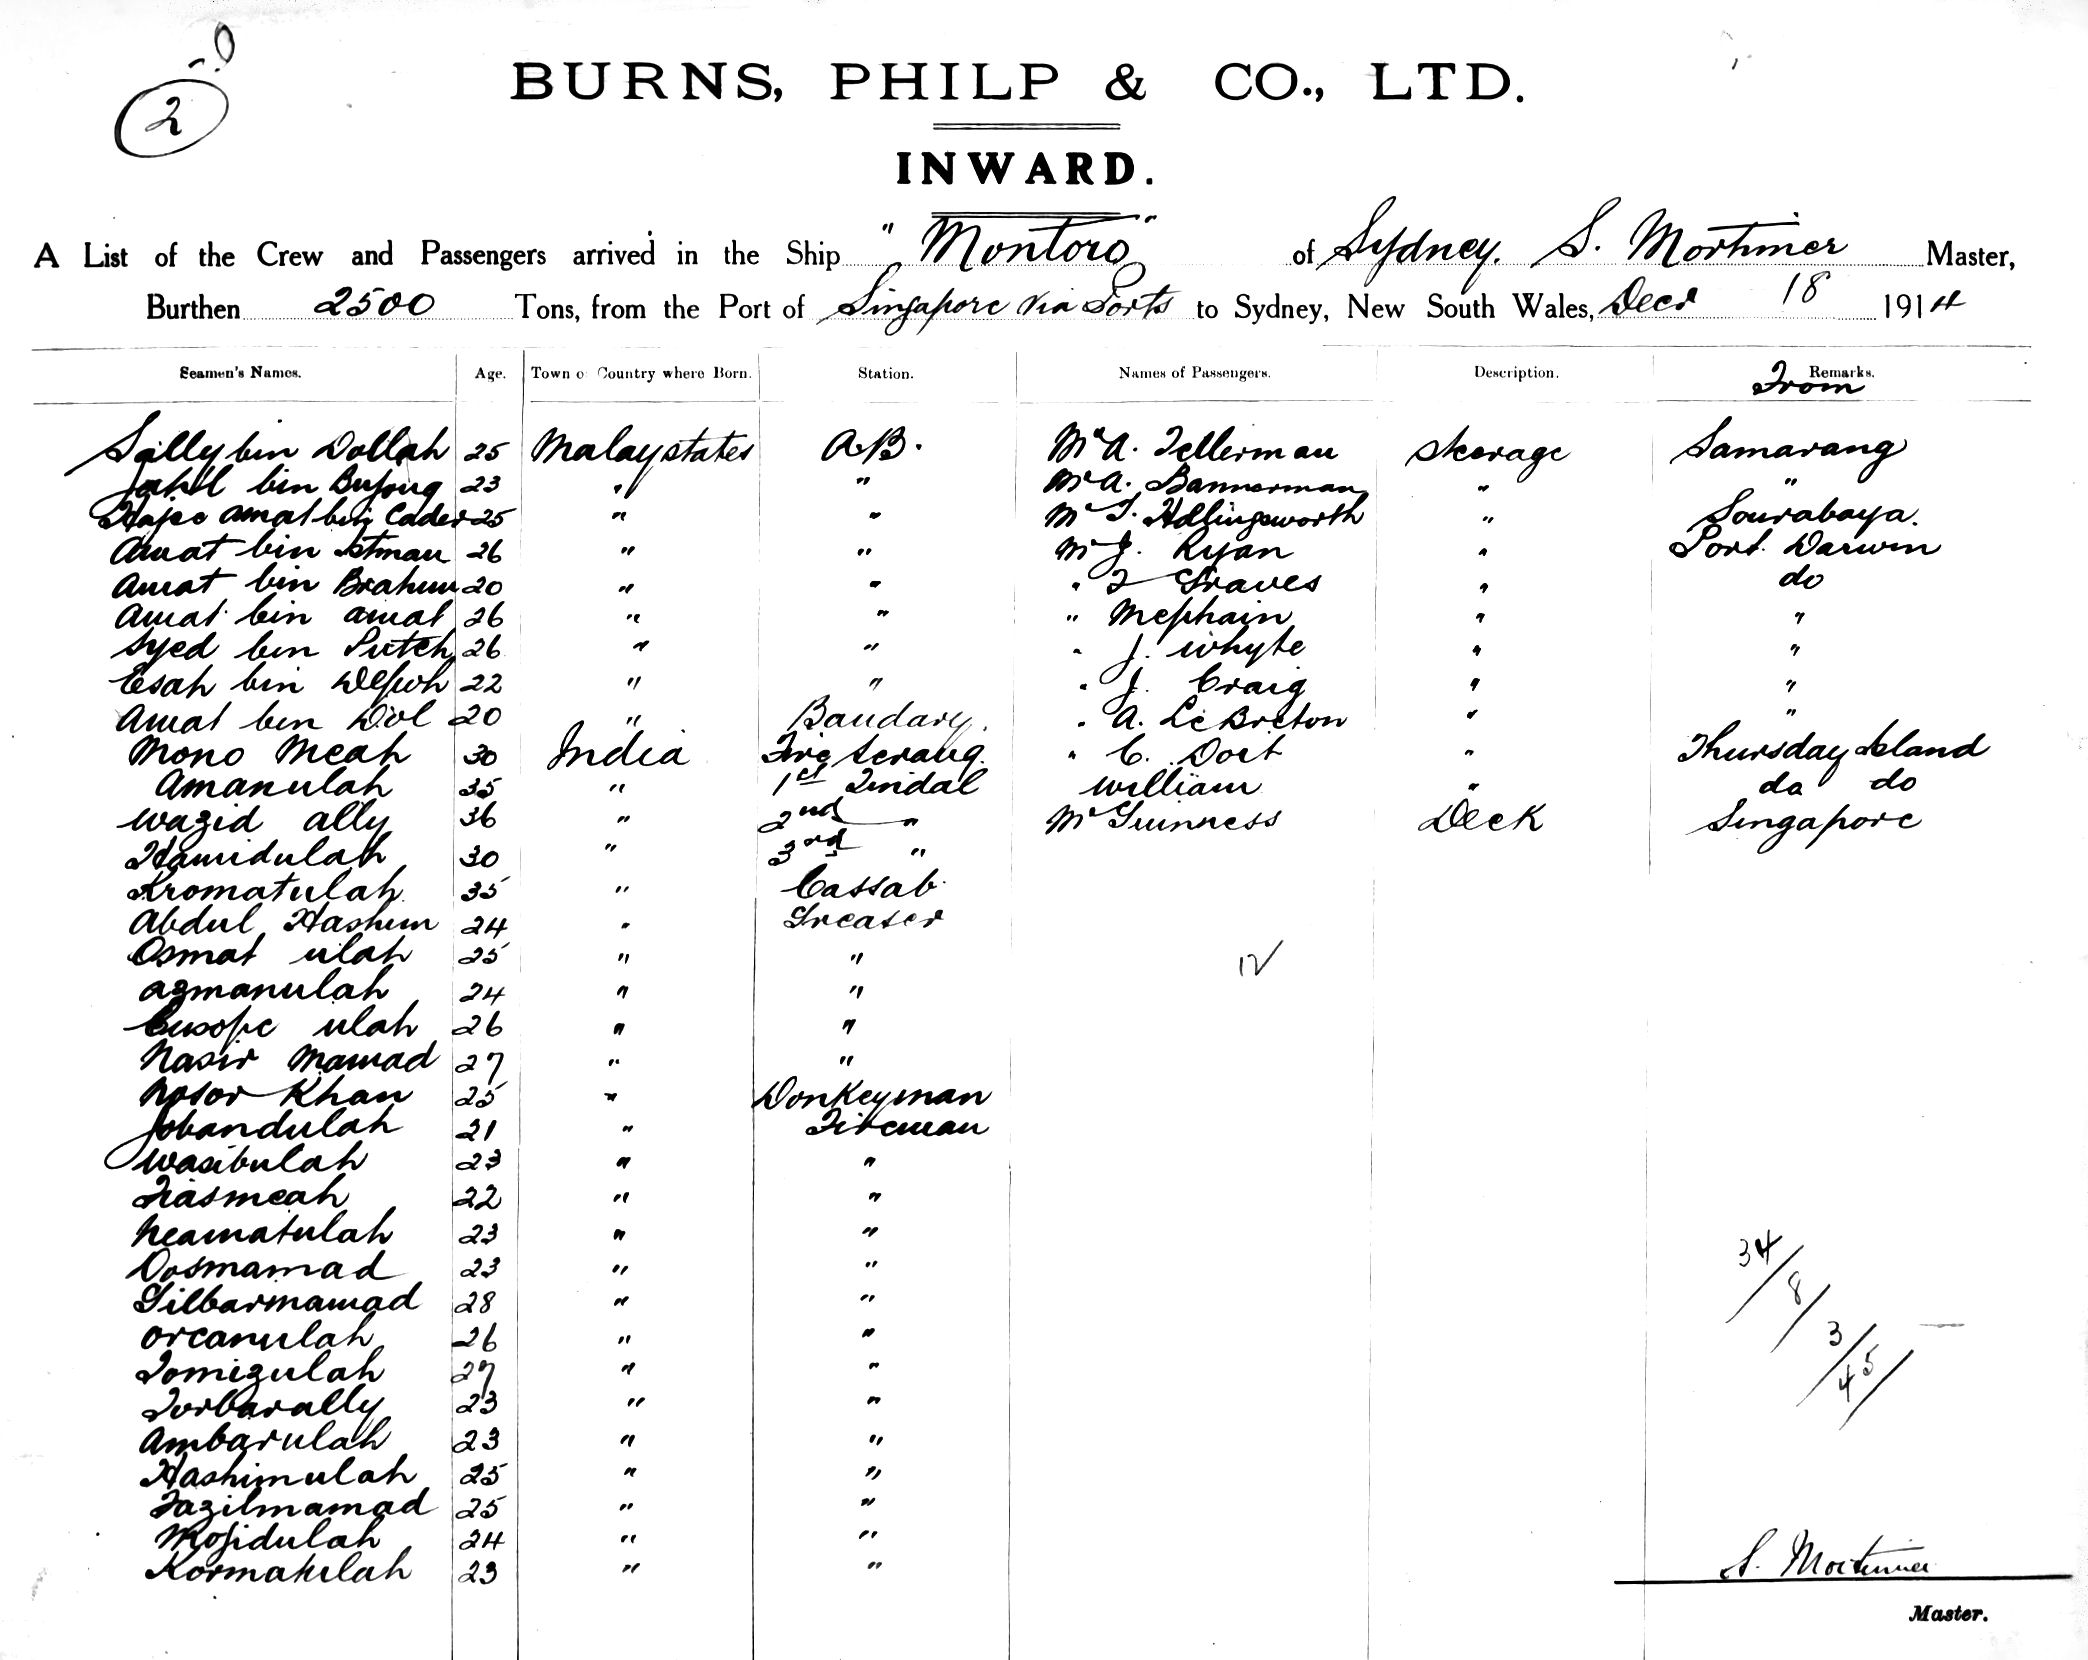 2
BURNS, PHILP & CO., LTD.
INWARD.
A List of the Crew and Passengers arrived in the Ship "Montoro" of Sydney. S. Mortimer Master,
Burthen 2500 Tons, from the Port of Singapore via Ports to Sydney, New South Wales, Decr 18 1914
Seamen's Names. Age. Town or Country where Born. Station. Names of Passengers. Description. Remarks.
From
Sally bin Dollah 25 Malay states A.B. Mr A. Tellerman Steerage Samarang
bin 23 " " Mr A. Bannerman " "
amat bin Cader 25 " " Mr T. Hollingsworth " Sourabaya.
Amat bin 26 " " Mr J. Ryan " Port Darwin
Amat bin Brahim 20 " " " Graves " do
Amat bin amat 26 " " " " "
Syed bin Puteh 26 " " " J. Whyte " "
Esah bin 22 " " " J. Craig " "
Amat bin Dol 20 " Bandary. " A. LeBreton " "
Mono Meah 30 India Fire Serang. " C. Dort " Thursday Island
Amanulah 35 " 1st Tindal William " do do
Wazid ally 36 " 2nd " Mr Guinness Deck Singapore
Hamidulah 30 " 3rd "
Kromatulah 35 " Cassab
Abdul Hashim 24 " Greaser
Osmat ulah 25 " " 12
Azmanulah 24 " "
ulah 26 " "
Nasir Mamad 27 " "
Nosor Khan 25 " Donkeyman
Jobandulah 21 " Fireman
Wasibulah 23 " "
Fiasmeah 22 " "
Neamatulah 23 " "
Dosmamad 23 " "
Gilbarmamad 28 " "
Orcanulah 26 " "
Tomizulah 27 " "
Torbarally 23 " "
Ambarulah 23 " "
Hashimulah 25 " "
Fazilmamad 25 " "
Mojidulah 24 " "
Kormatulah 23 " "
34/
8/
3/
45/
S. Mortimer
Master.